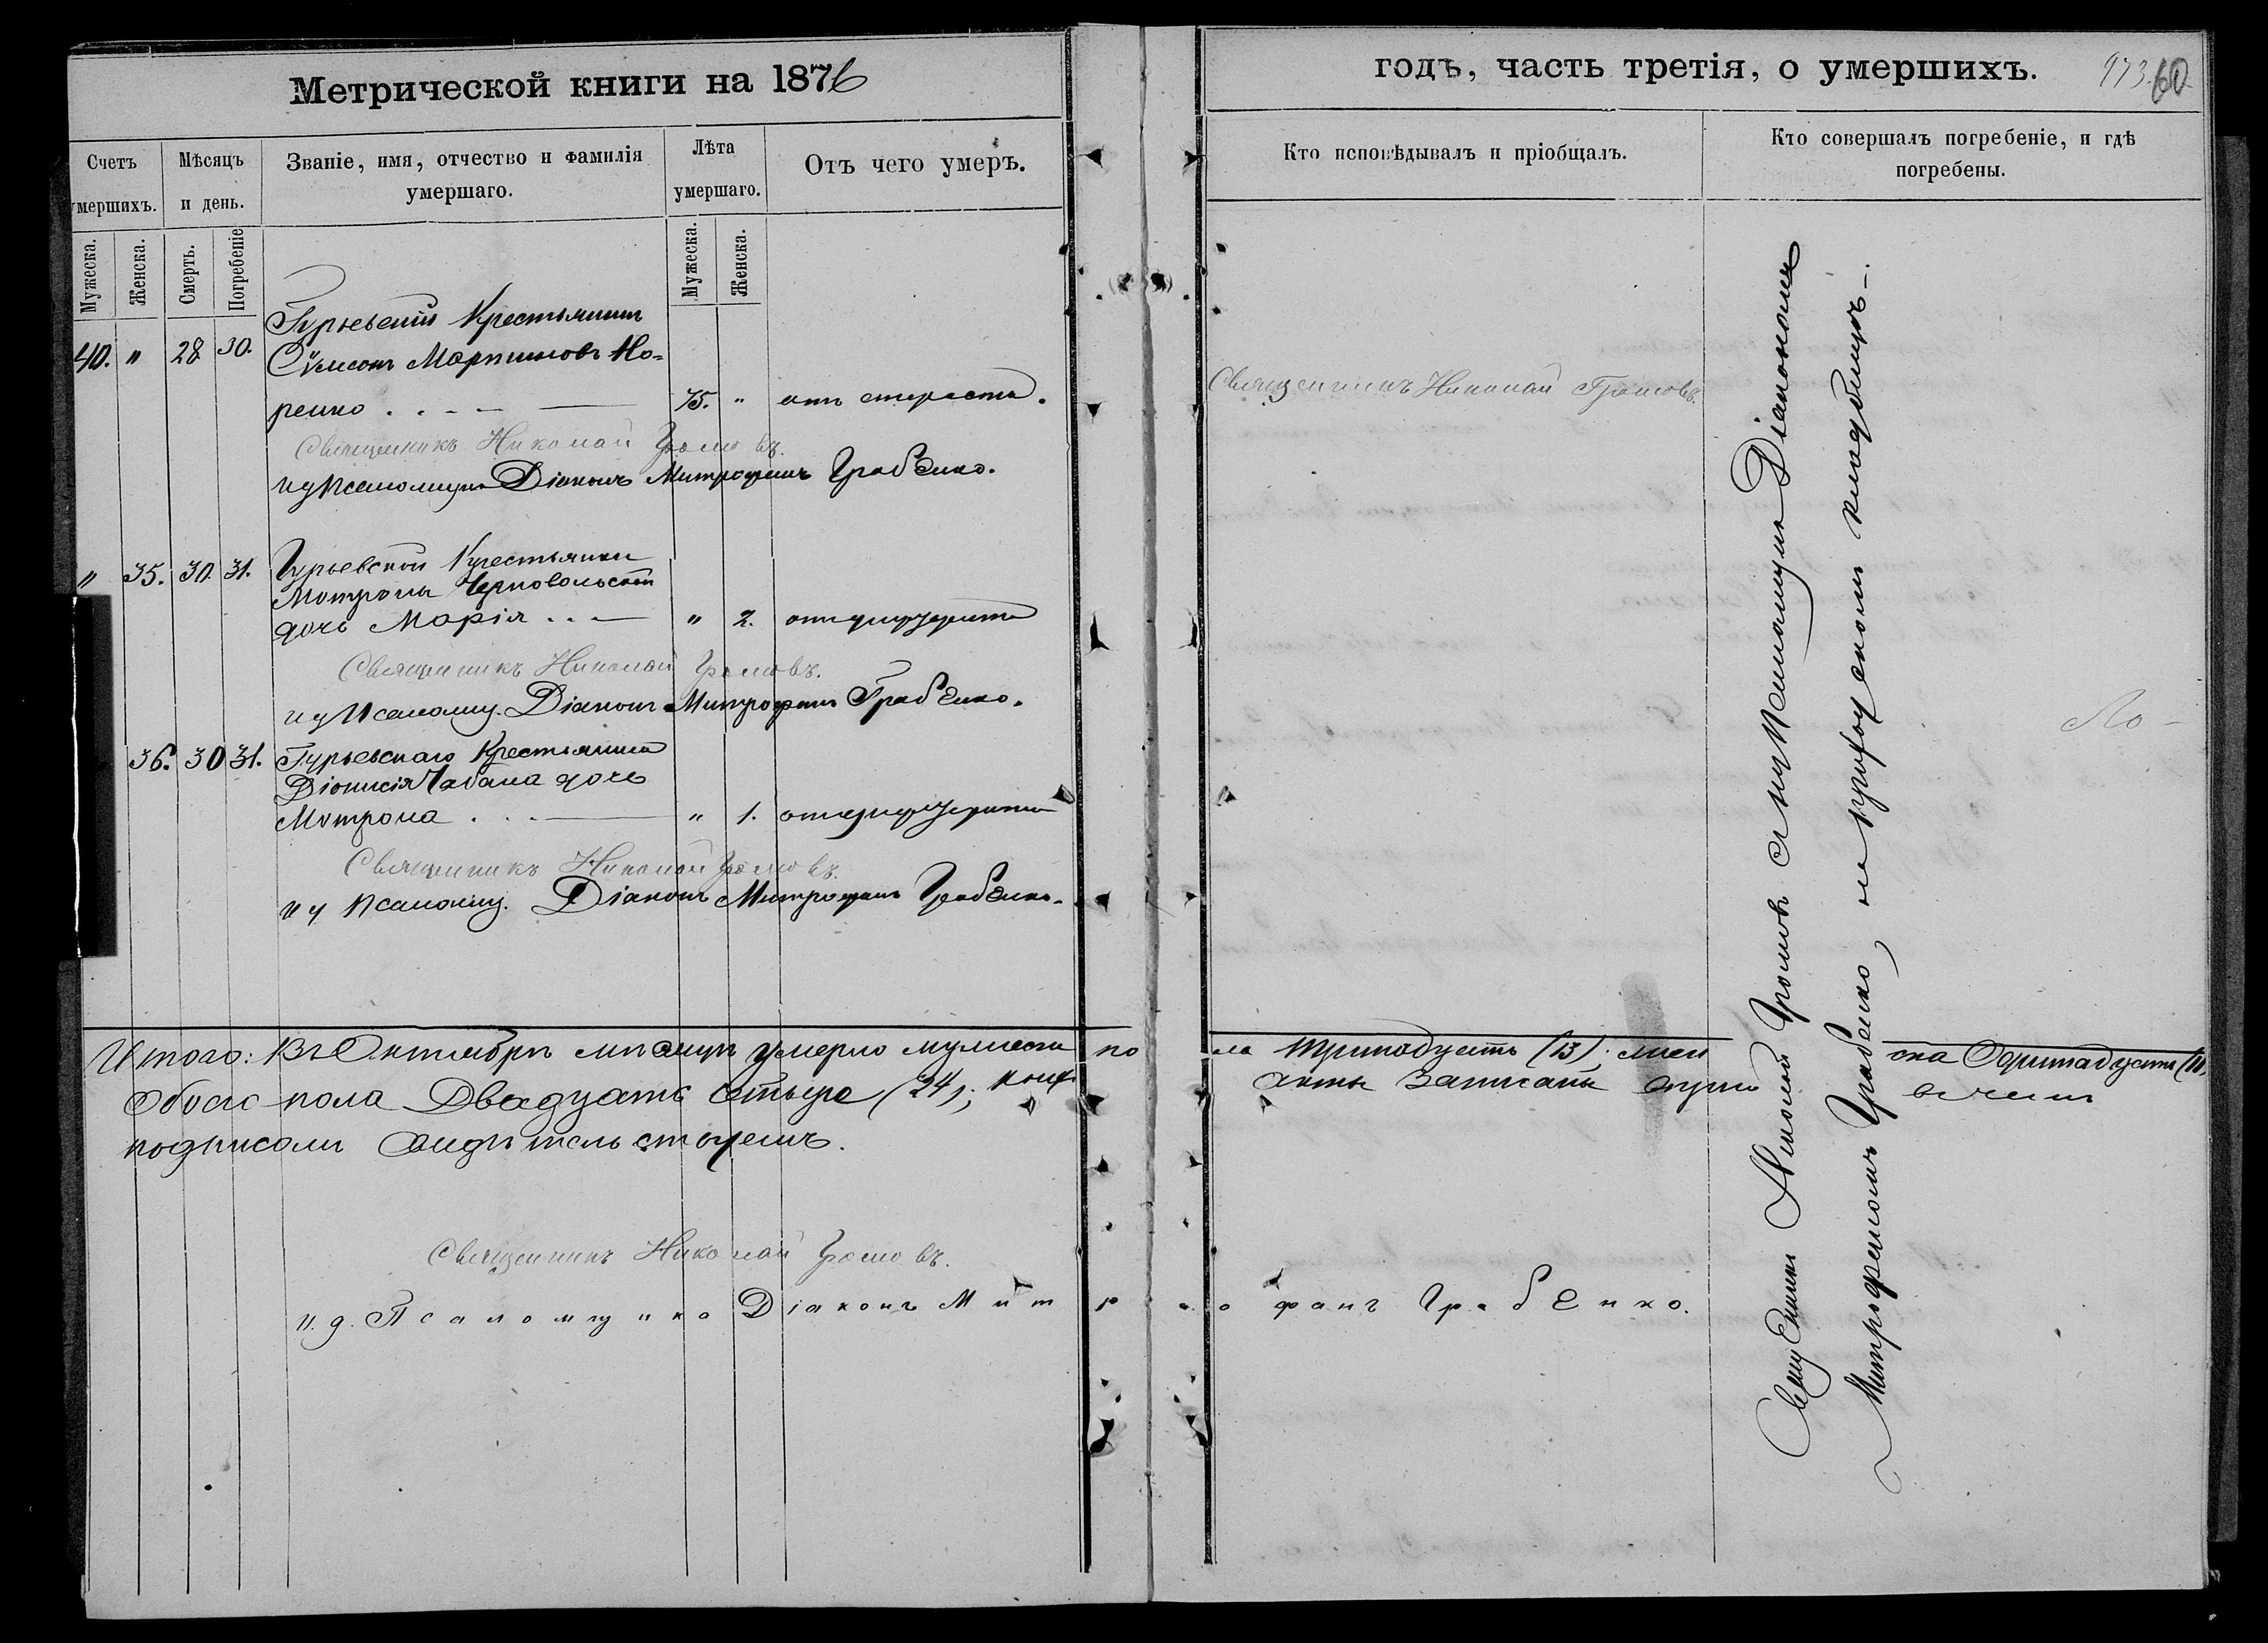 Метрической книги на 1876
годъ, часть третія, о умершихъ.
973. 60
Счетъ умершихъ.
Мѣсяцъ и день.
Званіе, имя, отчество и фамилія умершаго.
Лѣта умершаго.
Отъ чего умеръ.
Кто исповѣдывалъ и пріобщалъ.
Кто совершалъ погребеніе, и гдѣ погребены.
Мужеска.
Женска.
Смерть.
Погребеніе
Мужеска.
Женска.
Крестьянинъ
40. " 28 30. Мартиновъ Но-
ренко . . - - — 75. " отъ старости.
Священникъ Николай Громовъ.
Священникъ Николай Громовъ.
и д Псаломщика Діаконъ Митрофанъ Грабенко.
" 35. 30. 31. Гурьевской Крестьянки
Мотроны Черновольской
дочь Марія . . — " 2. отъ дифтерита
Священникъ Николай Громовъ.
и д Псаломщ. Діаконъ Митрофанъ Грабенко.
36. 30 31. Гурьевскаго Крестьянина
Діонисія Чабана дочь
Мотрона . . — " 1. отъ дифтерита
Священникъ Николай Громовъ.
и д Псаломщ. Діаконъ Митрофанъ Грабенко.
Итого: Въ Октябрѣ мѣсяцѣ умерло мужеска пола тринадцать (13); женска Одинадцать (11),
Обоего пола Двадцать четыре (24); акты записаны
подписомъ свидѣтельствуемъ.
Священникъ Николай Громовъ.
и. д. Псаломщика Діаконъ Митрофанъ Грабенко.
Священникъ Николай Громовъ съ и д Псаломщика Діакономъ
Митрофаномъ Грабенко, на приходскомъ кладбищѣ—.
Ло -